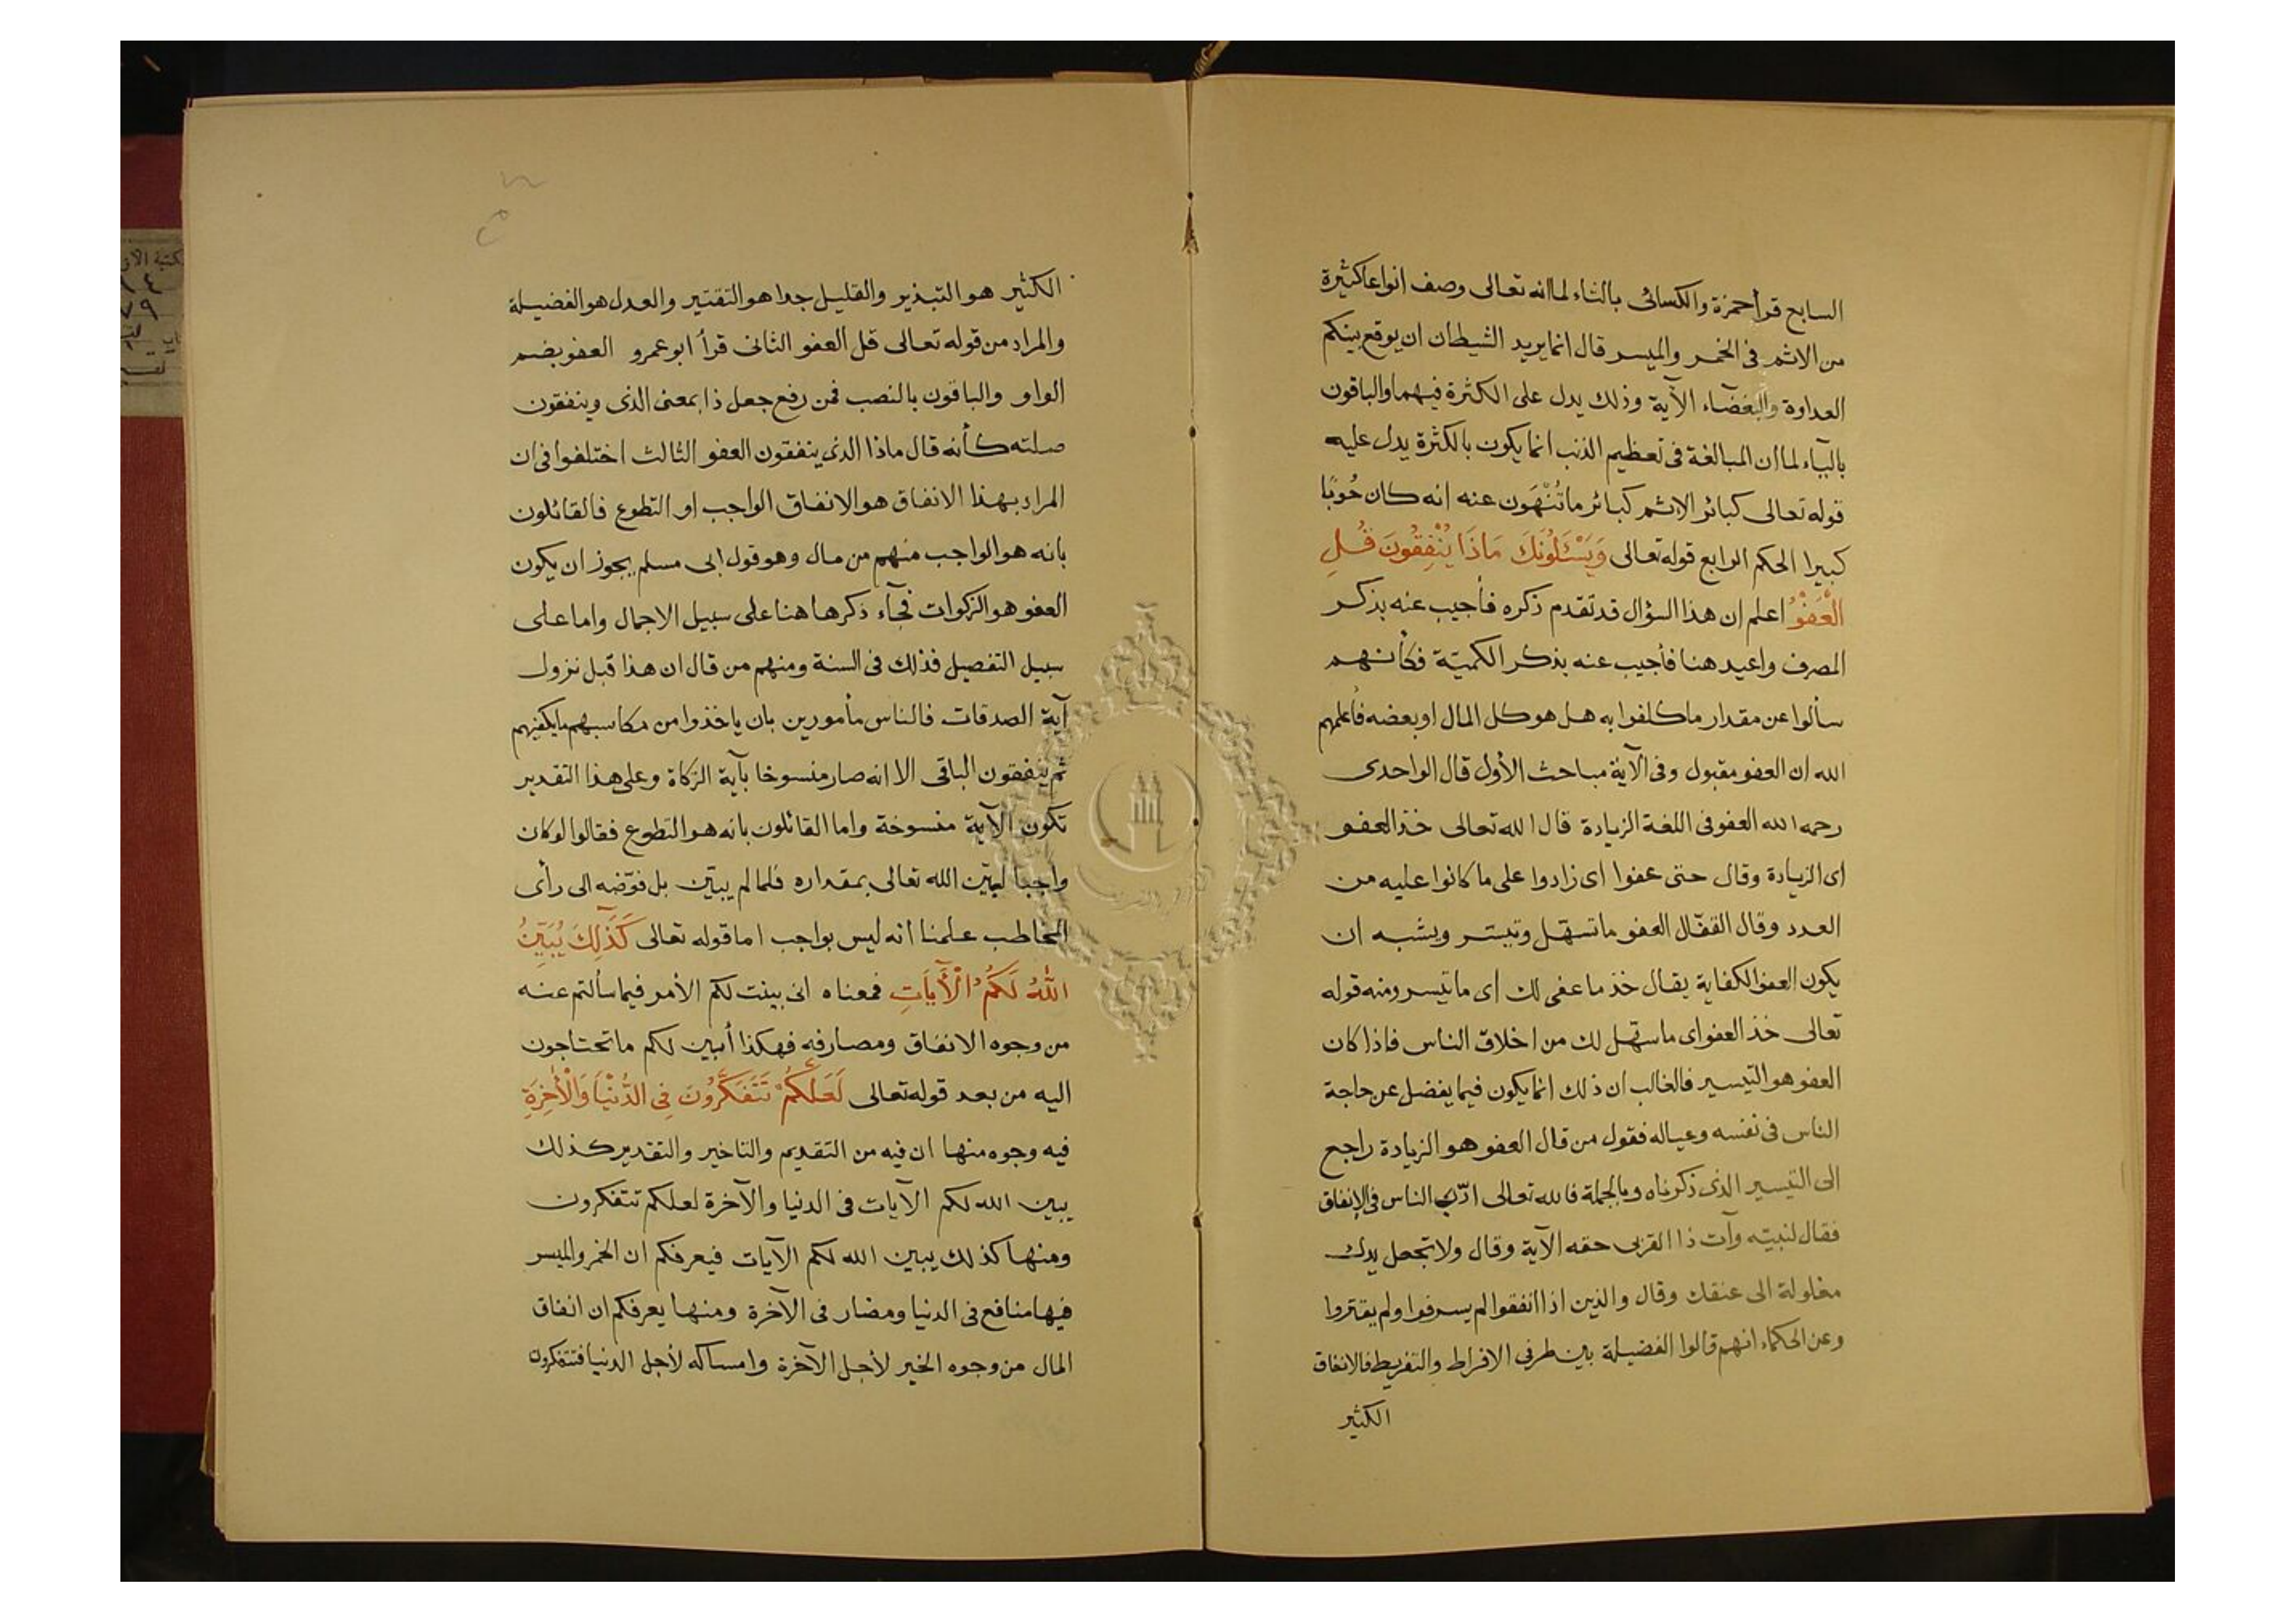 السابع قرأ حمزة والكسائى بالثاء لما انه تعالى وصف انواعا كثيرة
من الاثم فى الخمر والميسر قال انما يريد الشيطان ان يوقع بينكم
العداوة والبغضاء الآية وذلك يدل على الكثرة فيهما والباقون
بالباء لما ان المبالغة فى تعظيم الذنب انما يكون بالكثرة يدل عليه
قوله تعالى كبائر الاثم كبائر ما تُنْهَون عنه انه كان حُوبًا
كبيرا الحكم الرابع قوله تعالى وَيَسْـَٔلُونَكَ مَاذَا يُنْفِقُونَ قُلِ
الْعَفْوَ اعلم ان هذا السؤال قد تقدم ذكره فأجيب عنه بذكر
المصرف واعيد هنا فأجيب عنه بذكر الكميّة فكأنهم
سألوا عن مقدار ما كلفوا به هل هو كل المال او بعضه فأعلمهم
الله ان العفو مقبول وفى الآية مباحث الأول قال الواحدى
رحمه الله العفو فى اللغة الزيادة قال الله تعالى خذ العفو
اى الزيادة وقال حتى عفوا اى زادوا على ما كانوا عليه من
العدد وقال القفّال العفو ما تسهّل وتيسّر ويشبه ان
يكون العفو الكفاية يقال خذ ما عفى لك اى ما تيسر ومنه قوله
تعالى خذ العفو اى ما سهّل لك من اخلاق الناس فاذا كان
العفو هو التيسير فالغالب ان ذلك انما يكون فيما يفضل عن حاجة
الناس فى نفسه وعياله فقول من قال العفو هو الزيادة راجع
الى التيسير الذى ذكرناه وبالجملة فالله تعالى ادّب الناس فى الإنفاق
فقال لنبيّه وآت ذا القربى حقه الآية وقال ولا تجعل يدك
مغلولة الى عنقك وقال والذين اذا انفقوا لم يسرفوا ولم يقتروا
وعن الحكماء انهم قالوا الفضيلة بين طرفى الافراط والتفريط فالانفاق
الكثير
الكثير هو التبذير والقليل جدا هو التقتير والعدل هو الفضيلة
والمراد من قوله تعالى قل العفو الثانى قرأ ابو عمرو العفو بضم
الواو والباقون بالنصب فمن رفع جعل ذا بمعنى الذى وينفقون
صلته كأنه قال ماذا الذى ينفقون العفو الثالث اختلفوا فى ان
المراد بهذا الانفاق هو الانفاق الواجب او التطوع فالقائلون
بانه هو الواجب منهم من مال وهو قول ابى مسلم يجوز ان يكون
العفو هو الزكوات فجآء ذكرها هنا على سبيل الاجمال واما على
سبيل التفصيل فذلك فى السنة ومنهم من قال ان هذا قبل نزول
آية الصدقات فالناس مأمورين بان ياخذوا من مكاسبهم ما يكفيهم
ثم ينفقون الباقى الا انه صار منسوخا بآية الزكاة وعلى هذا التقدير
تكون الآية منسوخة واما القائلون بانه هو التطوع فقالوا لو كان
واجبا لبيّن الله تعالى بمقداره فلما لم يبيّن بل فوّضه الى رأى
المخاطب علمنا أنه ليس بواجب اما قوله تعالى كَذٰلِكَ يُبَيِّنُ
اللّٰهُ لَكُمُ الْآيَاتِ فمعناه انى بينت لكم الأمر فيما سألتم عنه
من وجوه الانفاق ومصارفه فهكذا أبين لكم ما تحتاجون
اليه من بعد قوله تعالى لَعَلَّكُمْ تَتَفَكَّرُونَ فِى الدُّنْيَا وَالْاٰخِرَةِ
فيه وجوه منها ان فيه من التقديم والتاخير والتقدير كذلك
يبين الله لكم الآيات فى الدنيا والآخرة لعلكم تتفكرون
ومنها كذلك يبين الله لكم الآيات فيعرفكم ان الخمر والميسر
فيها منافع فى الدنيا ومضار فى الآخرة ومنها يعرفكم ان انفاق
المال من وجوه الخير لأجل الآخرة وامساكه لأجل الدنيا فتتفكرون